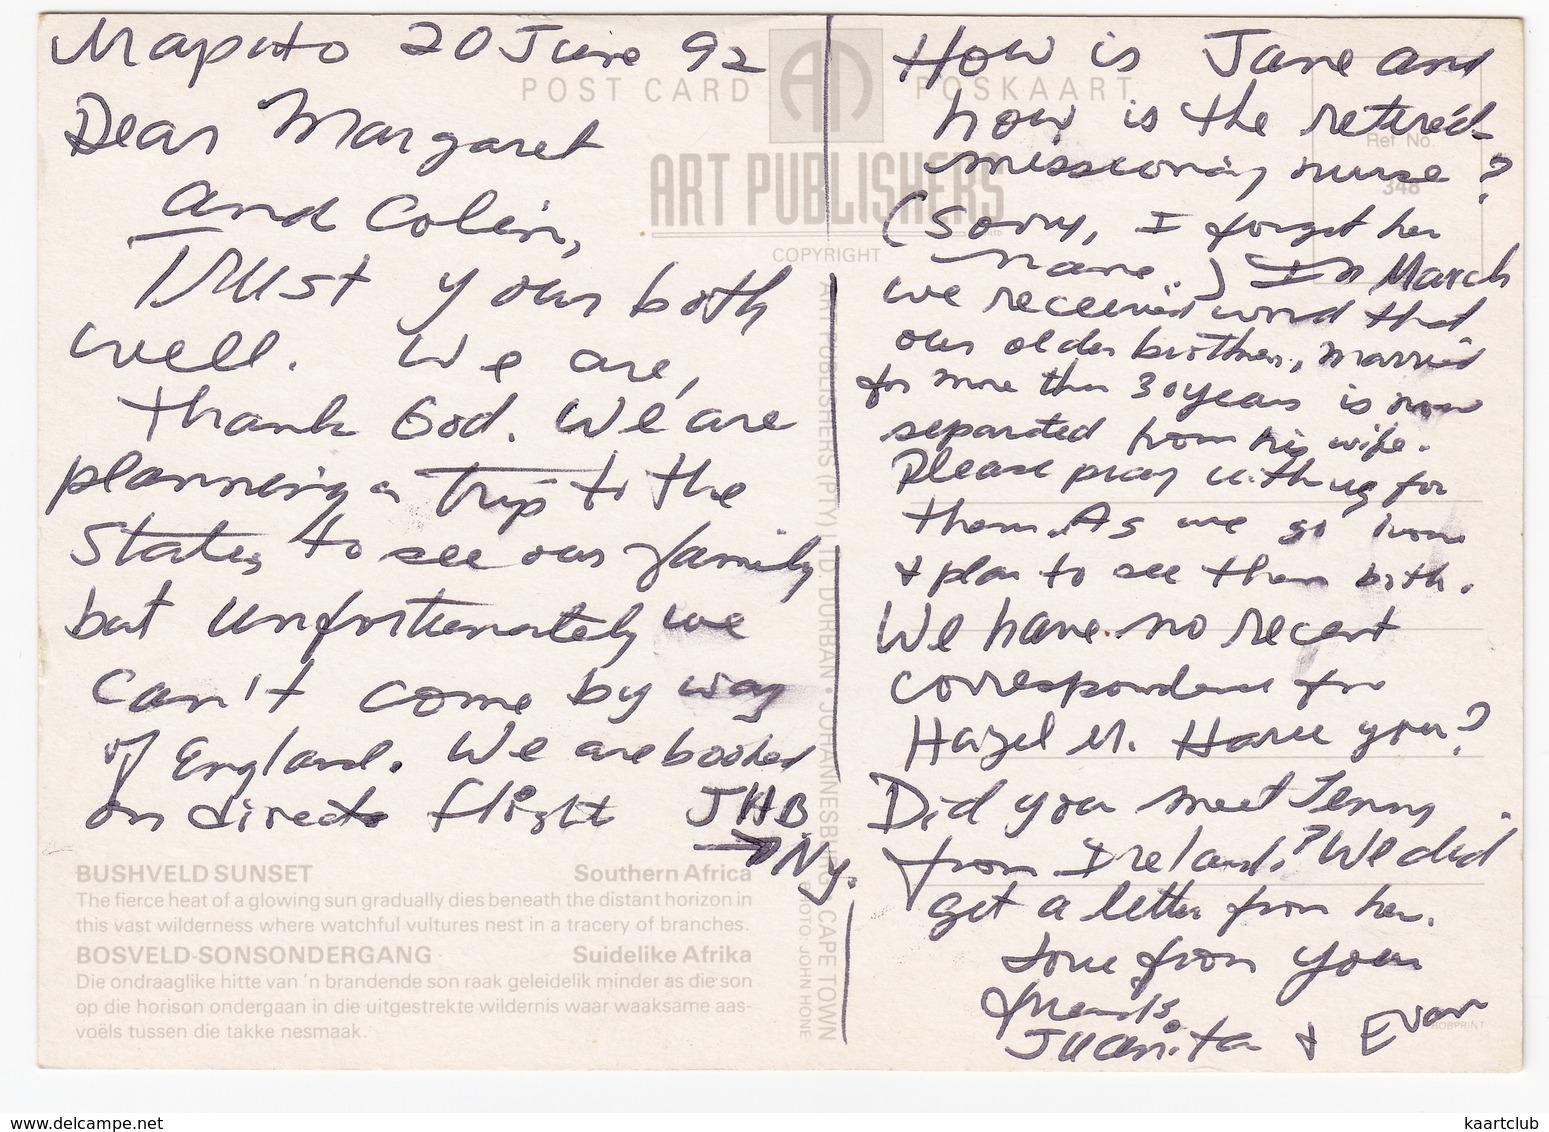 Maputo 20 June 92
Dear Margaret
and Colin,
Trust your both
well. We are,
thank God. We are
planning a trip to the
States to see our family
but unfortunately we
can't come by way
of England. We are booked
on direct flight JHB
→ NY.
How is Jane and
how is the retired
missionary nurse?
(Sorry, I forget her
name.) In March
we received word that
our older brother, married
for more than 30 years is now
separated from his wife.
Please pray with us for
them. As we go home
& plan to see them both.
We have no recent
correspondence for
Hazel M. Have you?
Did you meet Jenny
from Ireland? We did
get a letter from her.
Love from your
friends,
Juanita & Evan
POST CARD POSKAART
ART PUBLISHERS
COPYRIGHT
Ref No.
348
ART PUBLISHERS (PTY) LTD. DURBAN • JOHANNESBURG • CAPE TOWN
PHOTO: JOHN HONE
BUSHVELD SUNSET Southern Africa
The fierce heat of a glowing sun gradually dies beneath the distant horizon in
this vast wilderness where watchful vultures nest in a tracery of branches.
BOSVELD-SONSONDERGANG Suidelike Afrika
Die ondraaglike hitte van 'n brandende son raak geleidelik minder as die son
op die horison ondergaan in die uitgestrekte wildernis waar waaksame aas-
voëls tussen die takke nesmaak.
ROBPRINT
www.delcampe.net
kaartclub